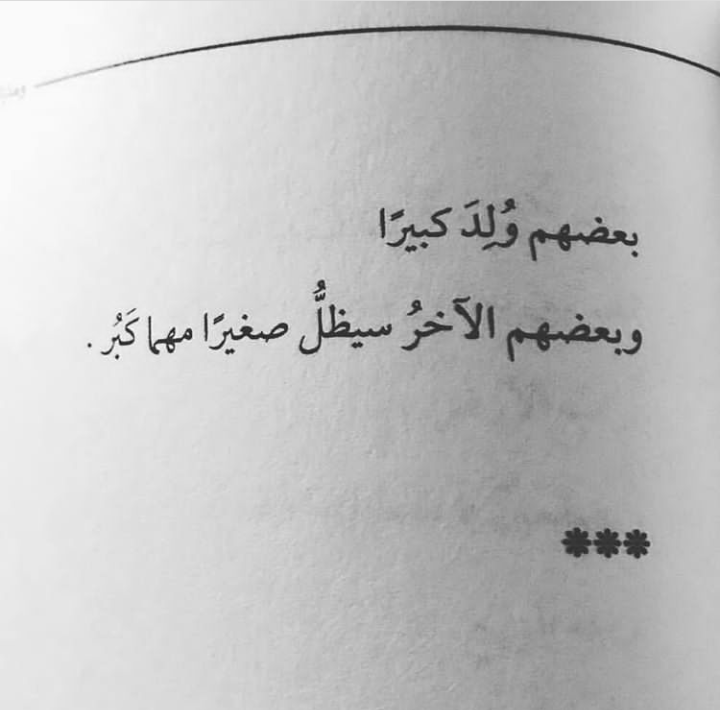 بعضهم وُلِدَ كبيرًا
وبعضهم الآخرُ سيظلُّ صغيرًا مهما كَبُر .
***